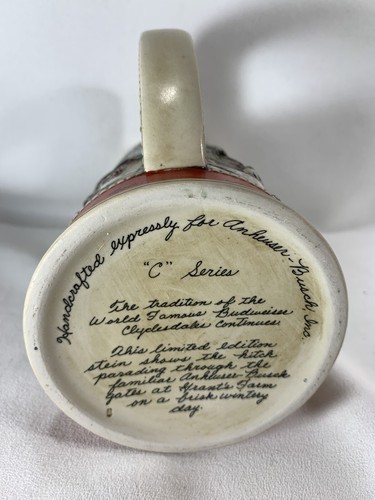 Handcrafted expressly for Anheuser-Busch, Inc.
"C" Series
The tradition of the
World Famous Budweiser
Clydesdales continues.
This limited edition
stein shows the hitch
parading through the
familiar Anheuser-Busch
gates at Grant's Farm
on a brisk wintery
day.